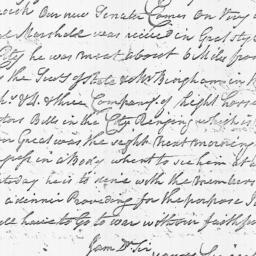 Our new Senator Comes on Very
Marshall was received in Great Style
City he was meet about 6 Miles from
the Secy of State & Mr Bingham in
& three Company of Light Horse
Bells in the City Ringing which is
Great was the sight Next morning
in a Body whent to see him at
today he is to dine with the Members
a dinner Providing for the porpose
have to Go to war with our faithful
I am Dr Sir